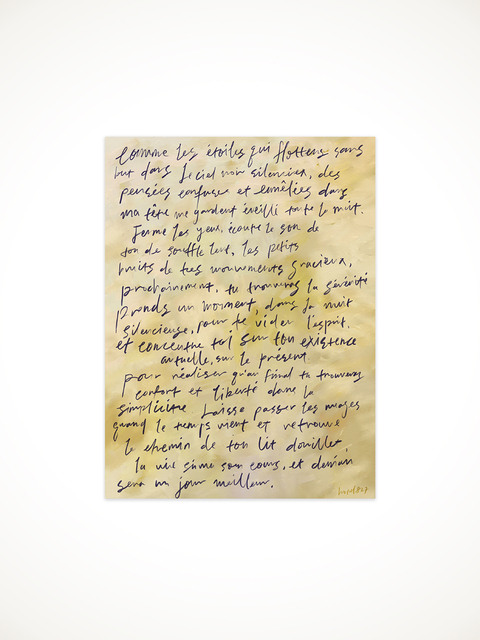 Comme les étoiles qui flottent sans
but dans le ciel noir silencieux, des
pensées confuses et emêlées dans
ma tête me gardent éveillé toute la nuit.
Ferme les yeux, écoute le son de
ton de souffle lent, les petits
bruits de tes mouvements gracieux,
prochainement, tu trouveras la sérénité
Prends un moment, dans la nuit
silencieuse, pour te vider l'esprit.
et concentre toi sur ton existence
actuelle, sur le présent.
pour réaliser qu'au final tu trouveras
confort et liberté dans la
simplicité. Laisse passer les nuages
quand le temps vient et retrouve
le chemin de ton lit douillet
la vie suit son cours, et demain
sera un jour meilleur.